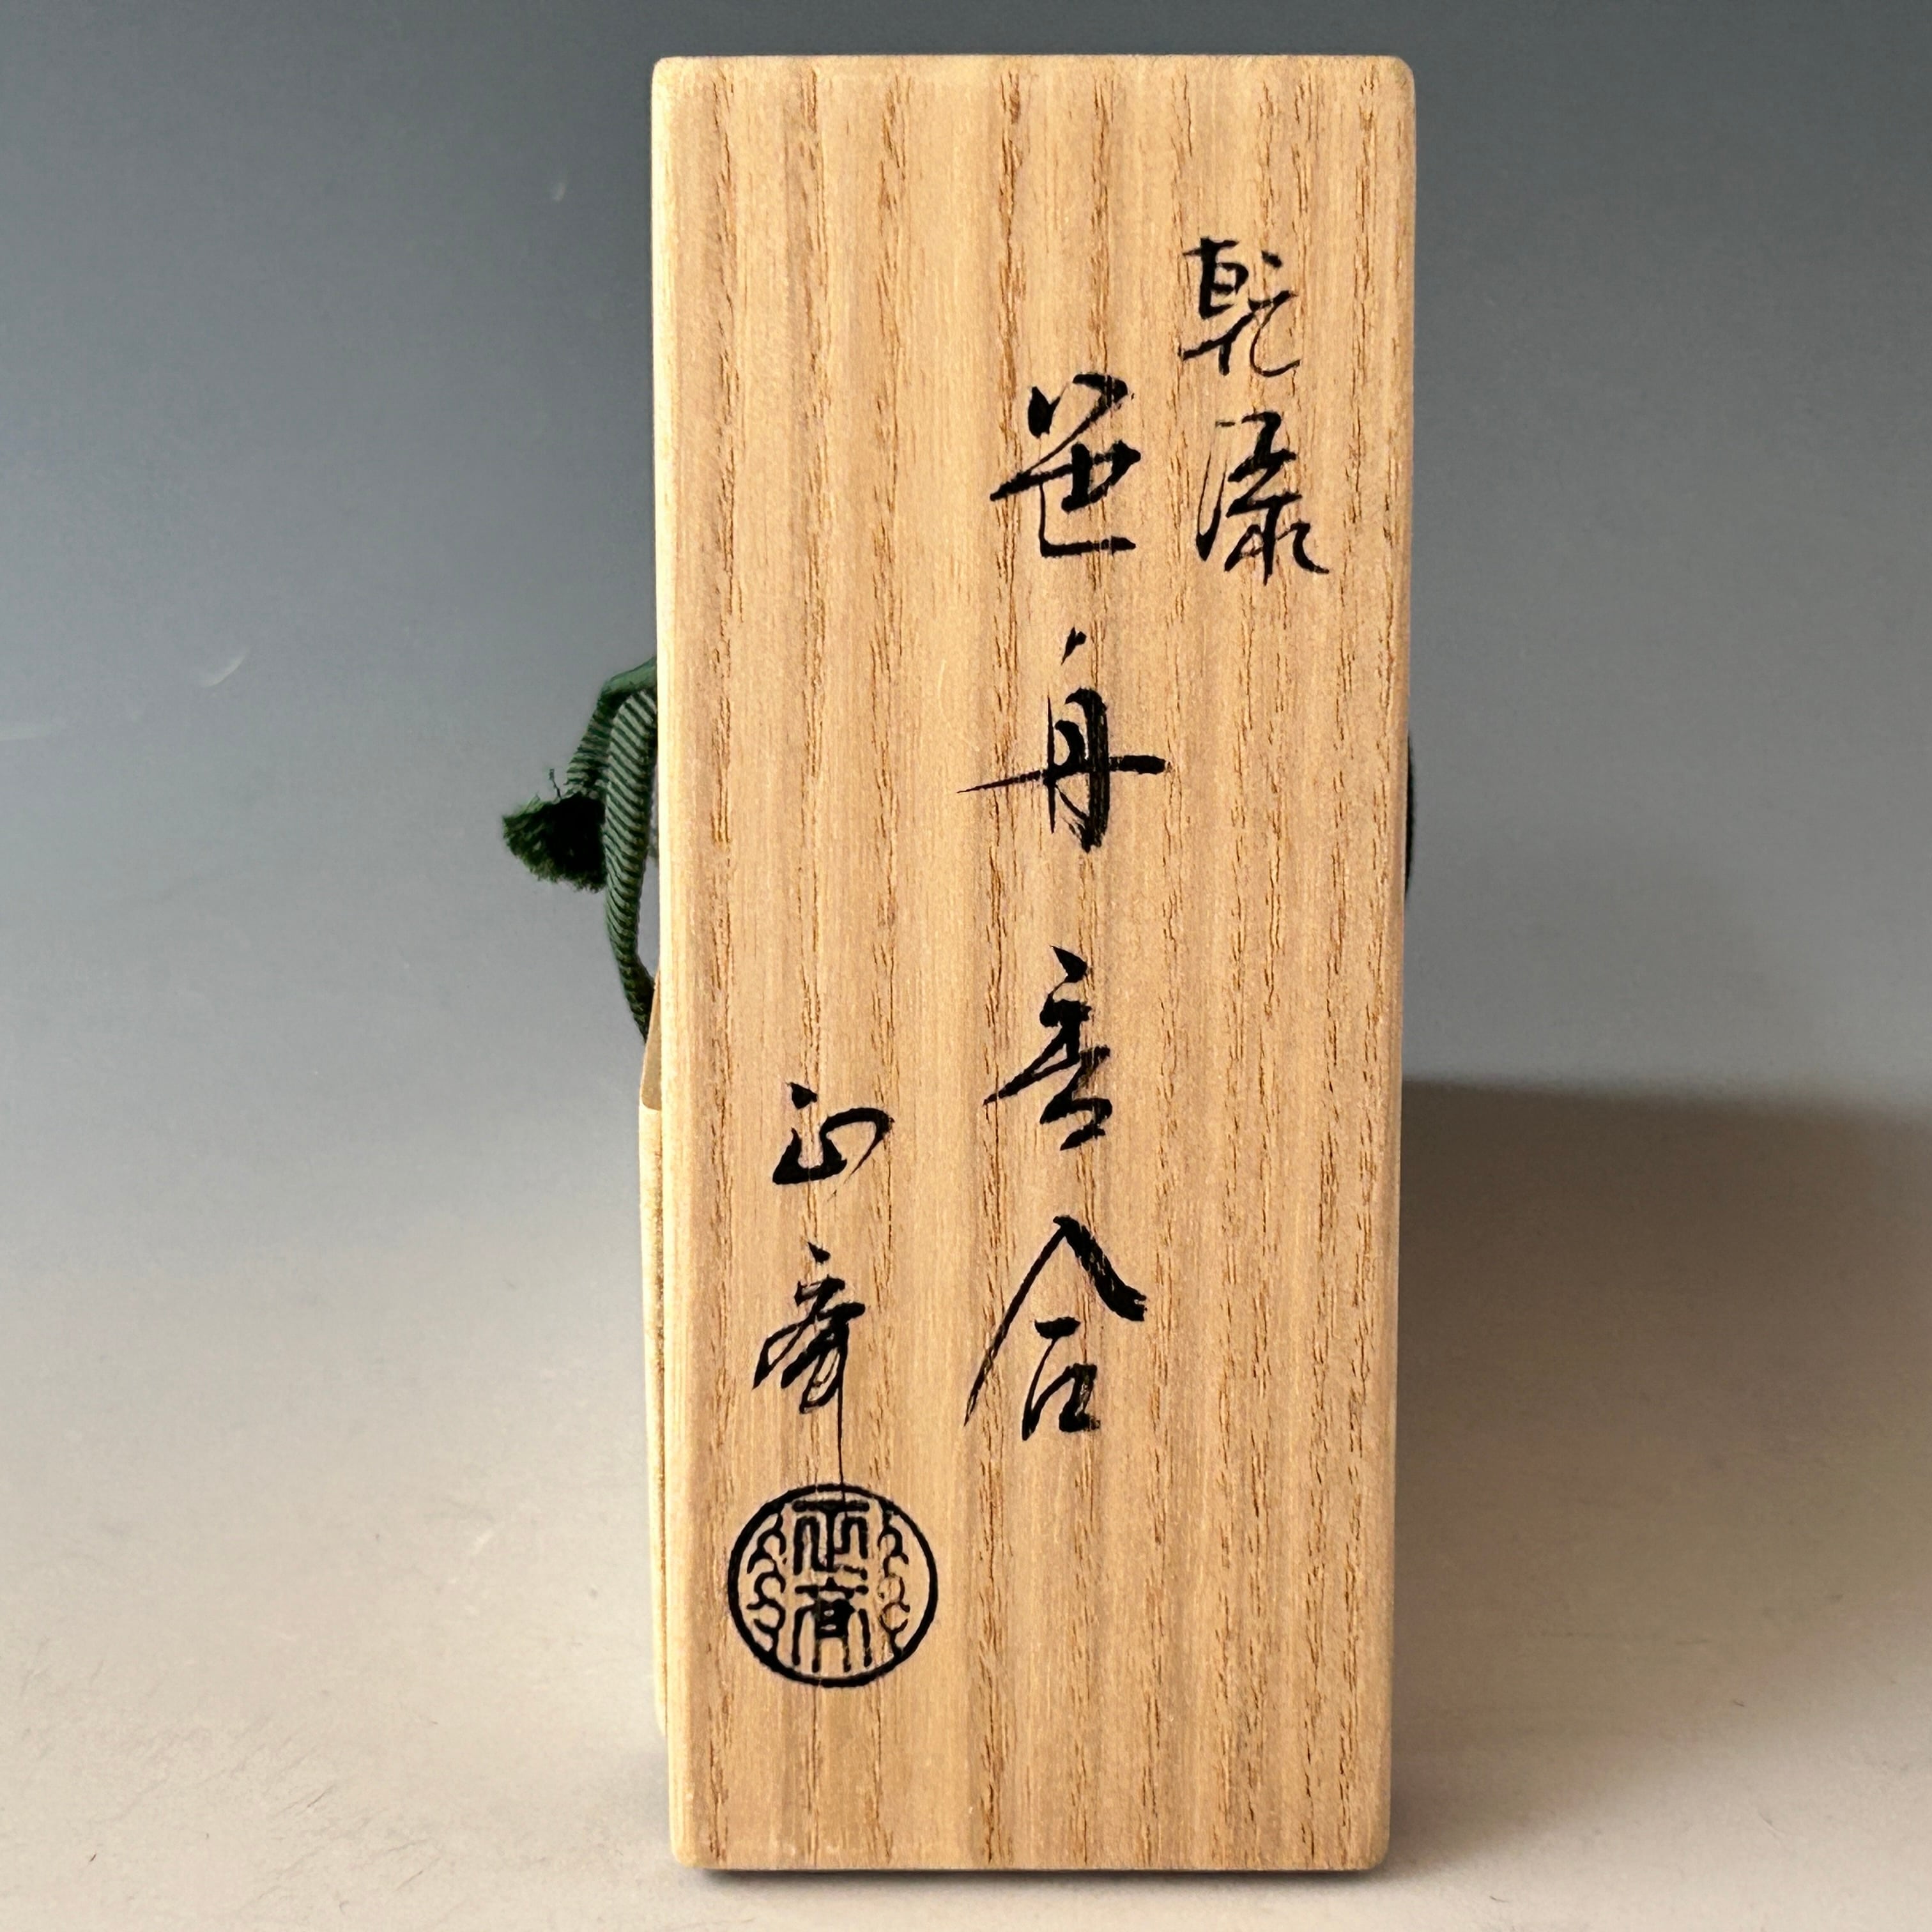 乾漆
笹舟香合
正斎